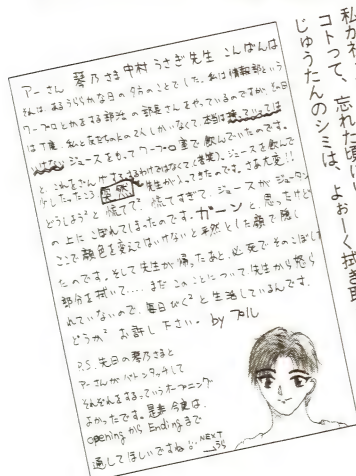 私が社
コトって、忘れた頃に
じゅうたんのシミは、よぉーく拭き取
アーさん 琴乃さま 中村うさぎ先生 こんばんは
それは、あるうららかな日の夕方のことでした。私は情報部という
ワープロとかをする部活の部長さんをやっているのですが、その日
は丁度、私と友だちの2人しかいなくて、本当は持っていっては
いけないジュースをもってワープロ室で飲んでいたのです。
と、これをさんげするわけではなくて(笑)、ジュースを飲んで
少したったころ突然先生が入ってきたのです。さあ大変!!
どうしようと慌てて、慌てすぎて、ジュースがジュータン
の上にこぼれてしまったのです。ガーンと思ったけど
ここで顔色を変えてはいけないと平然とした顔で隠し
たのです。そして先生が帰ったあと、必死でそのこぼした
部分を拭いて…。まだこのことについては先生から怒ら
れていないので、毎日びくびくと生活しているんです。
どうかお許し下さい。 by プル
P.S. 先日の琴乃さまと
アーさんがバトンタッチして
それぞれをするっていうオープニング
よかったです。是非今度は、
openingからEndingまで
通してほしいですね
NEXT